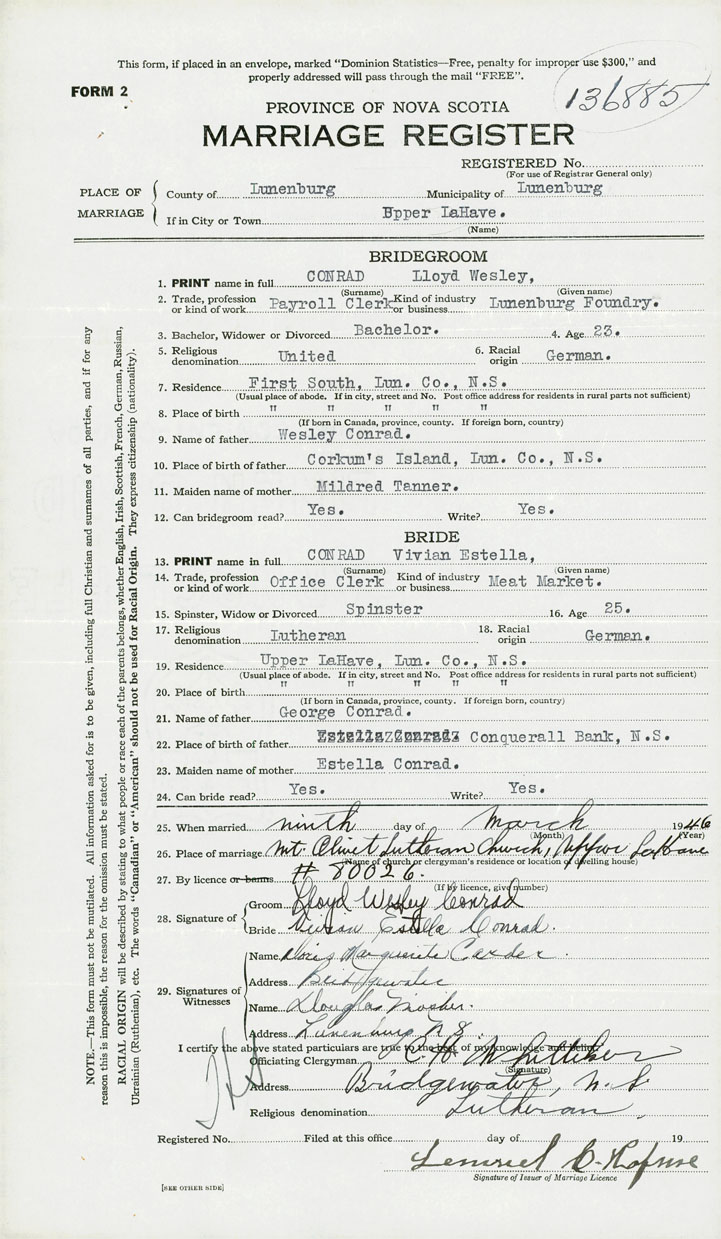 This form, if placed in an envelope, marked "Dominion Statistics—Free, penalty for improper use $300," and
properly addressed will pass through the mail "FREE".
FORM 2
136885
PROVINCE OF NOVA SCOTIA
MARRIAGE REGISTER
REGISTERED No.
(For use of Registrar General only)
PLACE OF MARRIAGE
County of Lunenburg Municipality of Lunenburg
If in City or Town Upper LaHave.
(Name)
BRIDEGROOM
1. PRINT name in full CONRAD Lloyd Wesley,
(Surname) (Given name)
2. Trade, profession or kind of work Payroll Clerk Kind of industry or business Lunenburg Foundry.
3. Bachelor, Widower or Divorced Bachelor. 4. Age 23.
5. Religious denomination United 6. Racial origin German.
7. Residence First South, Lun. Co., N.S.
(Usual place of abode. If in city, street and No. Post office address for residents in rural parts not sufficient)
8. Place of birth " " " " "
(If born in Canada, province, county. If foreign born, country)
9. Name of father Wesley Conrad.
10. Place of birth of father Corkum's Island, Lun. Co., N.S.
11. Maiden name of mother Mildred Tanner.
12. Can bridegroom read? Yes. Write? Yes.
BRIDE
13. PRINT name in full CONRAD Vivian Estella,
(Surname) (Given name)
14. Trade, profession or kind of work Office Clerk Kind of industry or business Meat Market.
15. Spinster, Widow or Divorced Spinster 16. Age 25.
17. Religious denomination Lutheran 18. Racial origin German.
19. Residence Upper LaHave, Lun. Co., N.S.
(Usual place of abode. If in city, street and No. Post office address for residents in rural parts not sufficient)
20. Place of birth " " " " "
(If born in Canada, province, county. If foreign born, country)
21. Name of father George Conrad.
22. Place of birth of father Conquerall Bank, N.S.
23. Maiden name of mother Estella Conrad.
24. Can bride read? Yes. Write? Yes.
25. When married ninth day of March 1946
(Month) (Year)
26. Place of marriage Mt. Olivet Lutheran Church, Upper LaHave
(Name of church or clergyman's residence or location of dwelling house)
27. By licence or banns # 80026.
(If by licence, give number)
28. Signature of
Groom Lloyd Wesley Conrad
Bride Vivian Estella Conrad.
29. Signatures of Witnesses
Name Doris Marguerite Carder.
Address Bridgewater
Name Douglas Mosher.
Address Lunenburg N.S.
I certify the above stated particulars are true to the best of my knowledge and belief.
Officiating Clergyman C. H.
(Signature)
Address Bridgewater, N.S.
Religious denomination Lutheran.
Registered No. Filed at this office day of 19
Lemuel
Signature of Issuer of Marriage Licence
[SEE OTHER SIDE]
NOTE.—This form must not be mutilated. All information asked for is to be given, including full Christian and surnames of all parties, and if for any
reason this is impossible, the reason for the omission must be stated.
RACIAL ORIGIN will be described by stating to what people or race each of the parents belongs, whether English, Irish, Scottish, French, German, Russian,
Ukrainian (Ruthenian), etc. The words "Canadian" or "American" should not be used for Racial Origin. They express citizenship (nationality).